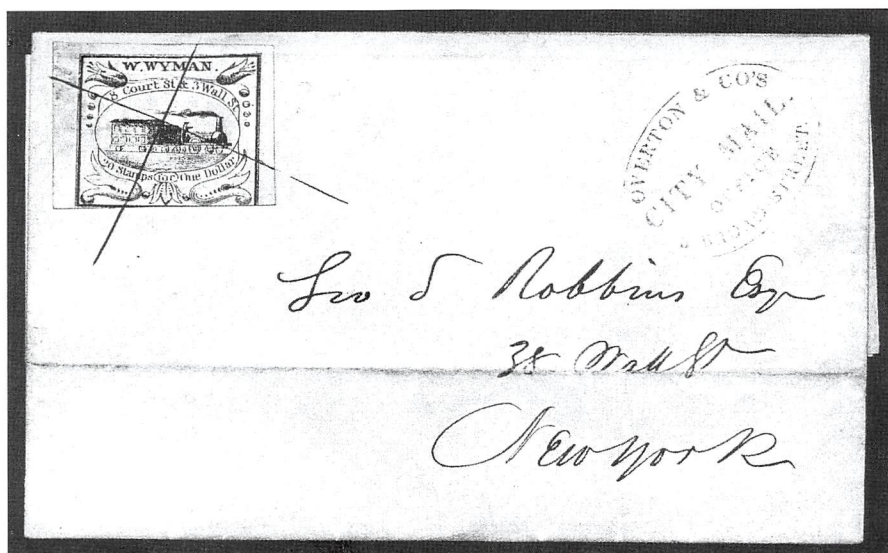 W. WYMAN.
8 Court St & 3 Wall St.
20 Stamps (for) One Dollar
OVERTON & CO'S
CITY MAIL.
OFFICE
BROAD STREET.
Geo S Robbins Esqr
38 Wall St
New York